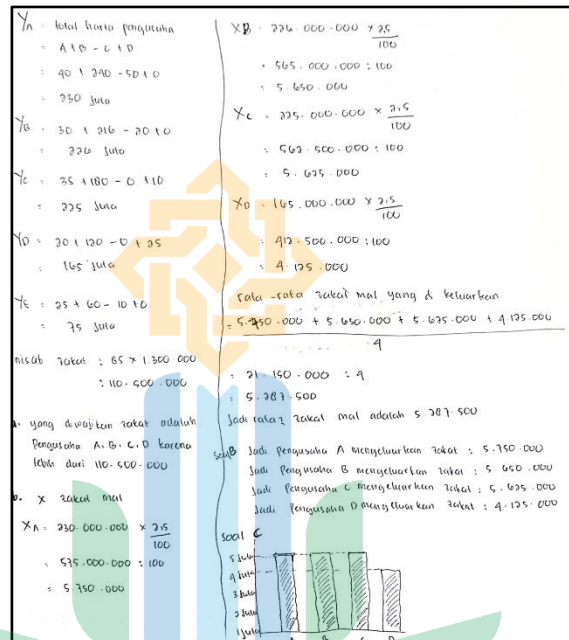 YA = total harta pengusaha
= A + B - C + D
= 40 + 240 - 50 + 0
= 230 Juta
YB = 30 + 216 - 20 + 0
= 226 Juta
YC = 35 + 180 - 0 + 10
= 225 Juta
YD = 20 + 120 - 0 + 25
= 165 Juta
YE = 25 + 60 - 10 + 0
= 75 Juta
nisab zakat : 85 x 1.300.000
: 110.500.000
a. yang diwajibkan zakat adalah
Pengusaha A, B, C, D karena
lebih dari 110.500.000
b. x zakat mal
XA = 230.000.000 x 2,5
100
= 575.000.000 : 100
= 5.750.000
XB = 226.000.000 x 2,5
100
= 565.000.000 : 100
= 5.650.000
XC = 225.000.000 x 2,5
100
= 562.500.000 : 100
= 5.625.000
XD = 165.000.000 x 2,5
100
= 412.500.000 : 100
= 4.125.000
rata-rata zakat mal yang di keluarkan
= 5.750.000 + 5.650.000 + 5.625.000 + 4.125.000
4
= 21.150.000 : 4
= 5.287.500
Jadi rata2 zakat mal adalah 5.287.500
Jadi Pengusaha A mengeluarkan zakat : 5.750.000
Jadi Pengusaha B mengeluarkan zakat : 5.650.000
Jadi Pengusaha C mengeluarkan zakat : 5.625.000
Jadi Pengusaha D mengeluarkan zakat : 4.125.000
Soal C
5 Juta
4 Juta
3 Juta
2 Juta
1 Juta